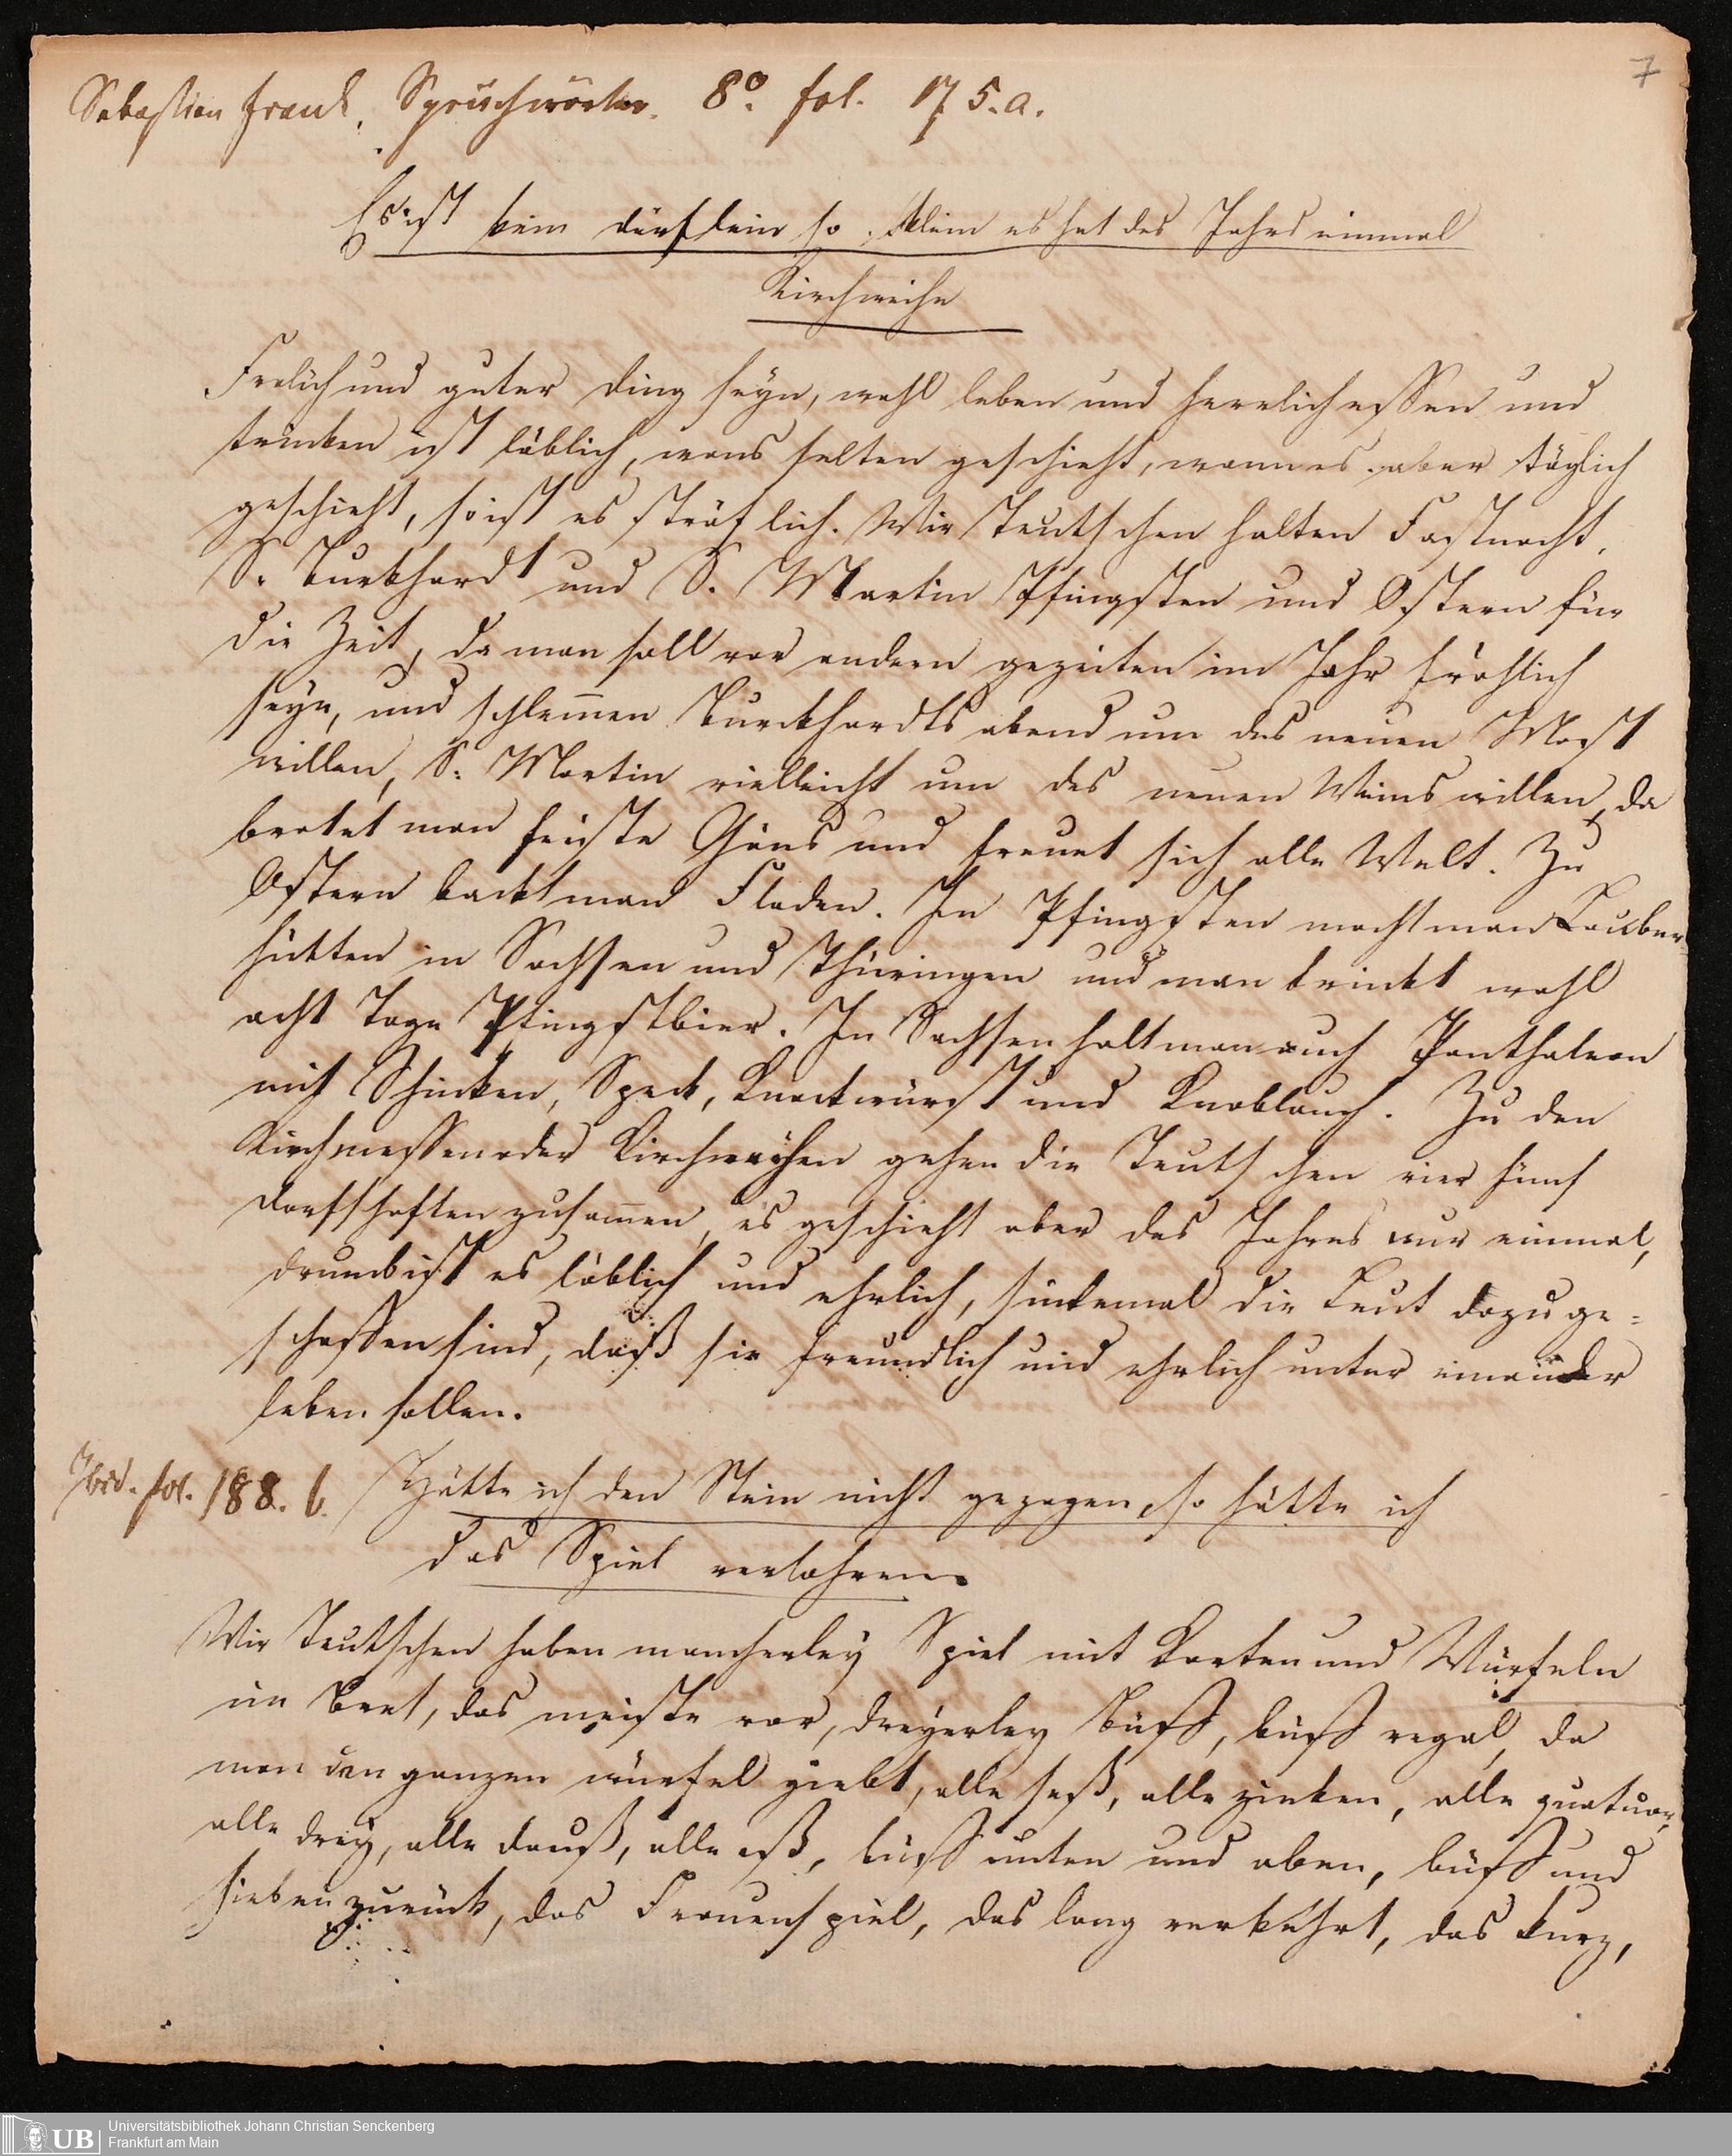 7
Sebastian Frank, Sprüchwörter. 8º. fol. 175.a.
Es ist kein dörflein so klein es hat des Jahrs einmal
Kirchweihe
Frolich und guter ding seyn, wohl leben und herrlich essen und
trinken ist löblich, wans selten geschieht, wann es aber täglich
geschieht, so ist es sträflich. Wir Teutschen halten Fastnacht,
S. Burkhard und S. Martin Pfingsten und Ostern für
die Zeit, da man soll vor andern gezeiten im Jahr fröhlich
seyn, und schlem̄en Burckhardts abend um des neuen Most
willen, S. Martin vielleicht um des neuen Weins willen, da
bratet man feiste Gäns und freuet sich alle Welt. Zu
Ostern backt man Fladen. In Pfingsten macht man Lauber
hütten in Sachsen und Thüringen und man trinkt wohl
acht Tage Pfingstbier. In Sachsen halt man auch Panthaleon
mit Shinken, Speck, Knackwürst und Knoblauch. Zu den
Kirchmessen oder Kirchweyhen gehen die Teutschen vier fünf
dorfschaften zusam̄en, es geschieht aber des Jahres nur einmal,
drumb ist es löblich und ehrlich, sintemal die Leut dazu ge=
schaffen sind, daß sie freundlich und ehrlich unter einander
leben sollen.
Ibid. fol. 188. b. Hätte ich den Stein nicht gezogen, so hätte ich
das Spiel verlohren.
Wir Teutschen haben mancherley Spiel mit Karten und Würfeln
im Bret, das meiste vor, dreyerley Buff, buff regal, da
man den ganzen würfel giebt, alle seß, alle zinken, alle quatuor,
alle drey, alle dauß, alle eß, buff unten und oben, buff und
sieben zurück, das Frauenspiel, das lang verkehrt, das kurz,
UB
Universitätsbibliothek Johann Christian Senckenberg
Frankfurt am Main